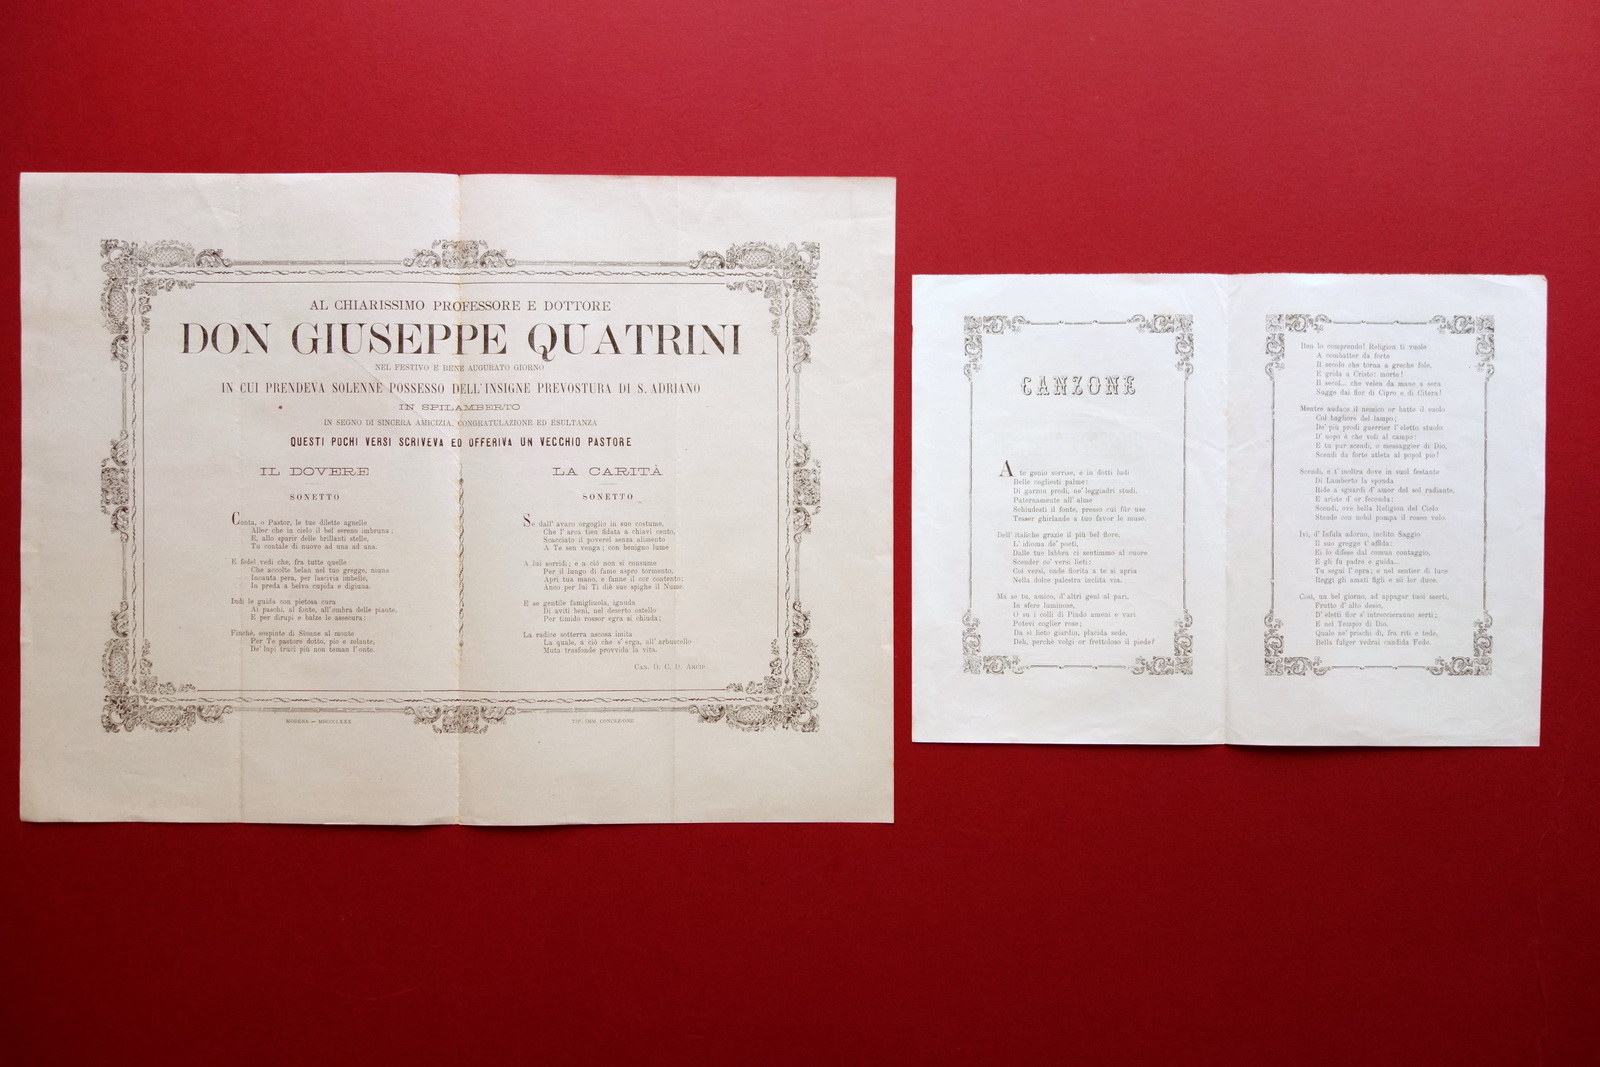 AL CHIARISSIMO PROFESSORE E DOTTORE
DON GIUSEPPE QUATRINI
NEL FESTIVO E BENE AUGURATO GIORNO
IN CUI PRENDEVA SOLENNE POSSESSO DELL'INSIGNE PREVOSTURA DI S. ADRIANO
IN SPILAMBERTO
IN SEGNO DI SINCERA AMICIZIA, CONGRATULAZIONE ED ESULTANZA
QUESTI POCHI VERSI SCRIVEVA ED OFFERIVA UN VECCHIO PASTORE
IL DOVERE
SONETTO
Conta, o Pastor, le tue dilette agnelle
Allor che in cielo il bel sereno imbruna;
E, allo sparir delle brillanti stelle,
Tu contale di nuovo ad una ad una.
E fedel vedi che, fra tutte quelle
Che accolte belan nel tuo gregge, niuna
Incauta pera, per lascivia imbelle,
In preda a belva cupida e digiuna.
Indi le guida con pietosa cura
Ai paschi, al fonte, all'ombra delle piante,
E per dirupi e balze le assecura:
Finchè, sospinte di Sionne al monte
Per Te pastore dotto, pio e zelante,
De' lupi truci più non teman l'onte.
LA CARITÀ
SONETTO
Se dall' avaro orgoglio in suo costume,
Che l' arca tien fidata a chiavi cento,
Scacciato il poverel senza alimento
A Te sen venga; con benigno lume
A lui sorridi; e a ciò non si consume
Per il lungo di fame aspro tormento,
Apri tua mano, e fanne il cor contento:
Anco per lui Ti diè sue spighe il Nume.
E se gentile famigliuola, ignuda
Di aviti beni, nel deserto ostello
Per timido rossor egra si chiuda;
La radice sotterra ascosa imita
La quale, a ciò che s' erga, all' arbuscello
Muta trasfonde provvida la vita.
CAN. D. C. D. ARCIP.
MODENA — MDCCCLXXX
TIP. IMM. CONCEZIONE
CANZONE
A te genio sorrise, e in dotti ludi
Belle cogliesti palme:
Di garzon prodi, ne' leggiadri studi,
Paternamente all' alme
Schiudesti il fonte, presso cui fûr use
Tesser ghirlande a tuo favor le muse.
Dell' italiche grazie il più bel fiore,
L' idioma de' poeti,
Dalle tue labbra ci sentimmo al cuore
Scender co' versi lieti:
Coi versi, onde fiorita a te si apria
Nella dolce palestra inclita via.
Ma se tu, amico, d' altri genî al pari,
In sfere luminose,
O su i colli di Pindo ameni e vari
Potevi coglier rose;
Da sì lieto giardin, placida sede,
Deh, perchè volgi or frettoloso il piede?
Ben lo comprendo! Religion ti vuole
A combatter da forte
Il secolo che torna a greche fole,
E grida a Cristo: morte!
Il secol... che velen da mane a sera
Sugge dai fior di Cipro e di Citera!
Mentre audace il nemico or batte il suolo
Col bagliore del lampo;
De' più prodi guerrier l' eletto stuolo
D' uopo è che voli al campo:
E tu pur scendi, o messaggier di Dio,
Scendi da forte atleta al popol pio!
Scendi, e t' inoltra dove in suol festante
Di Lamberto la sponda
Ride a sguardi d' amor del sol radiante,
E ariste d' or feconda:
Scendi, ove bella Religion del Cielo
Stende con nobil pompa il roseo velo.
Ivi, d' Infula adorno, inclito Saggio
Il suo gregge t' affida:
Ei lo difese dal comun contaggio,
E gli fu padre e guida...
Tu segui l' opra; e nel sentier di luce
Reggi gli amati figli e sii lor duce.
Così, un bel giorno, ad appagar tuoi merti,
Frutto d' alto desio,
D' eletti fior s' intrecceranno serti;
E nel Tempio di Dio,
Quale ne' prischi dì, fra riti e tede,
Bella fulger vedrai candida Fede.